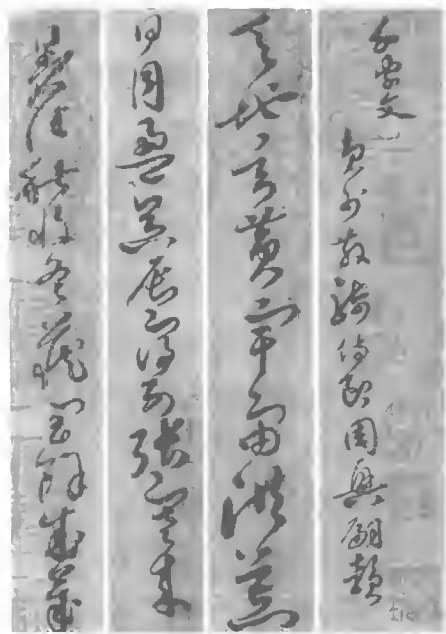 千字文 員外散騎侍郎周興嗣韻
天地玄黃宇宙洪荒
日月盈昃辰宿列張寒來
暑往秋收冬藏閏餘成歲